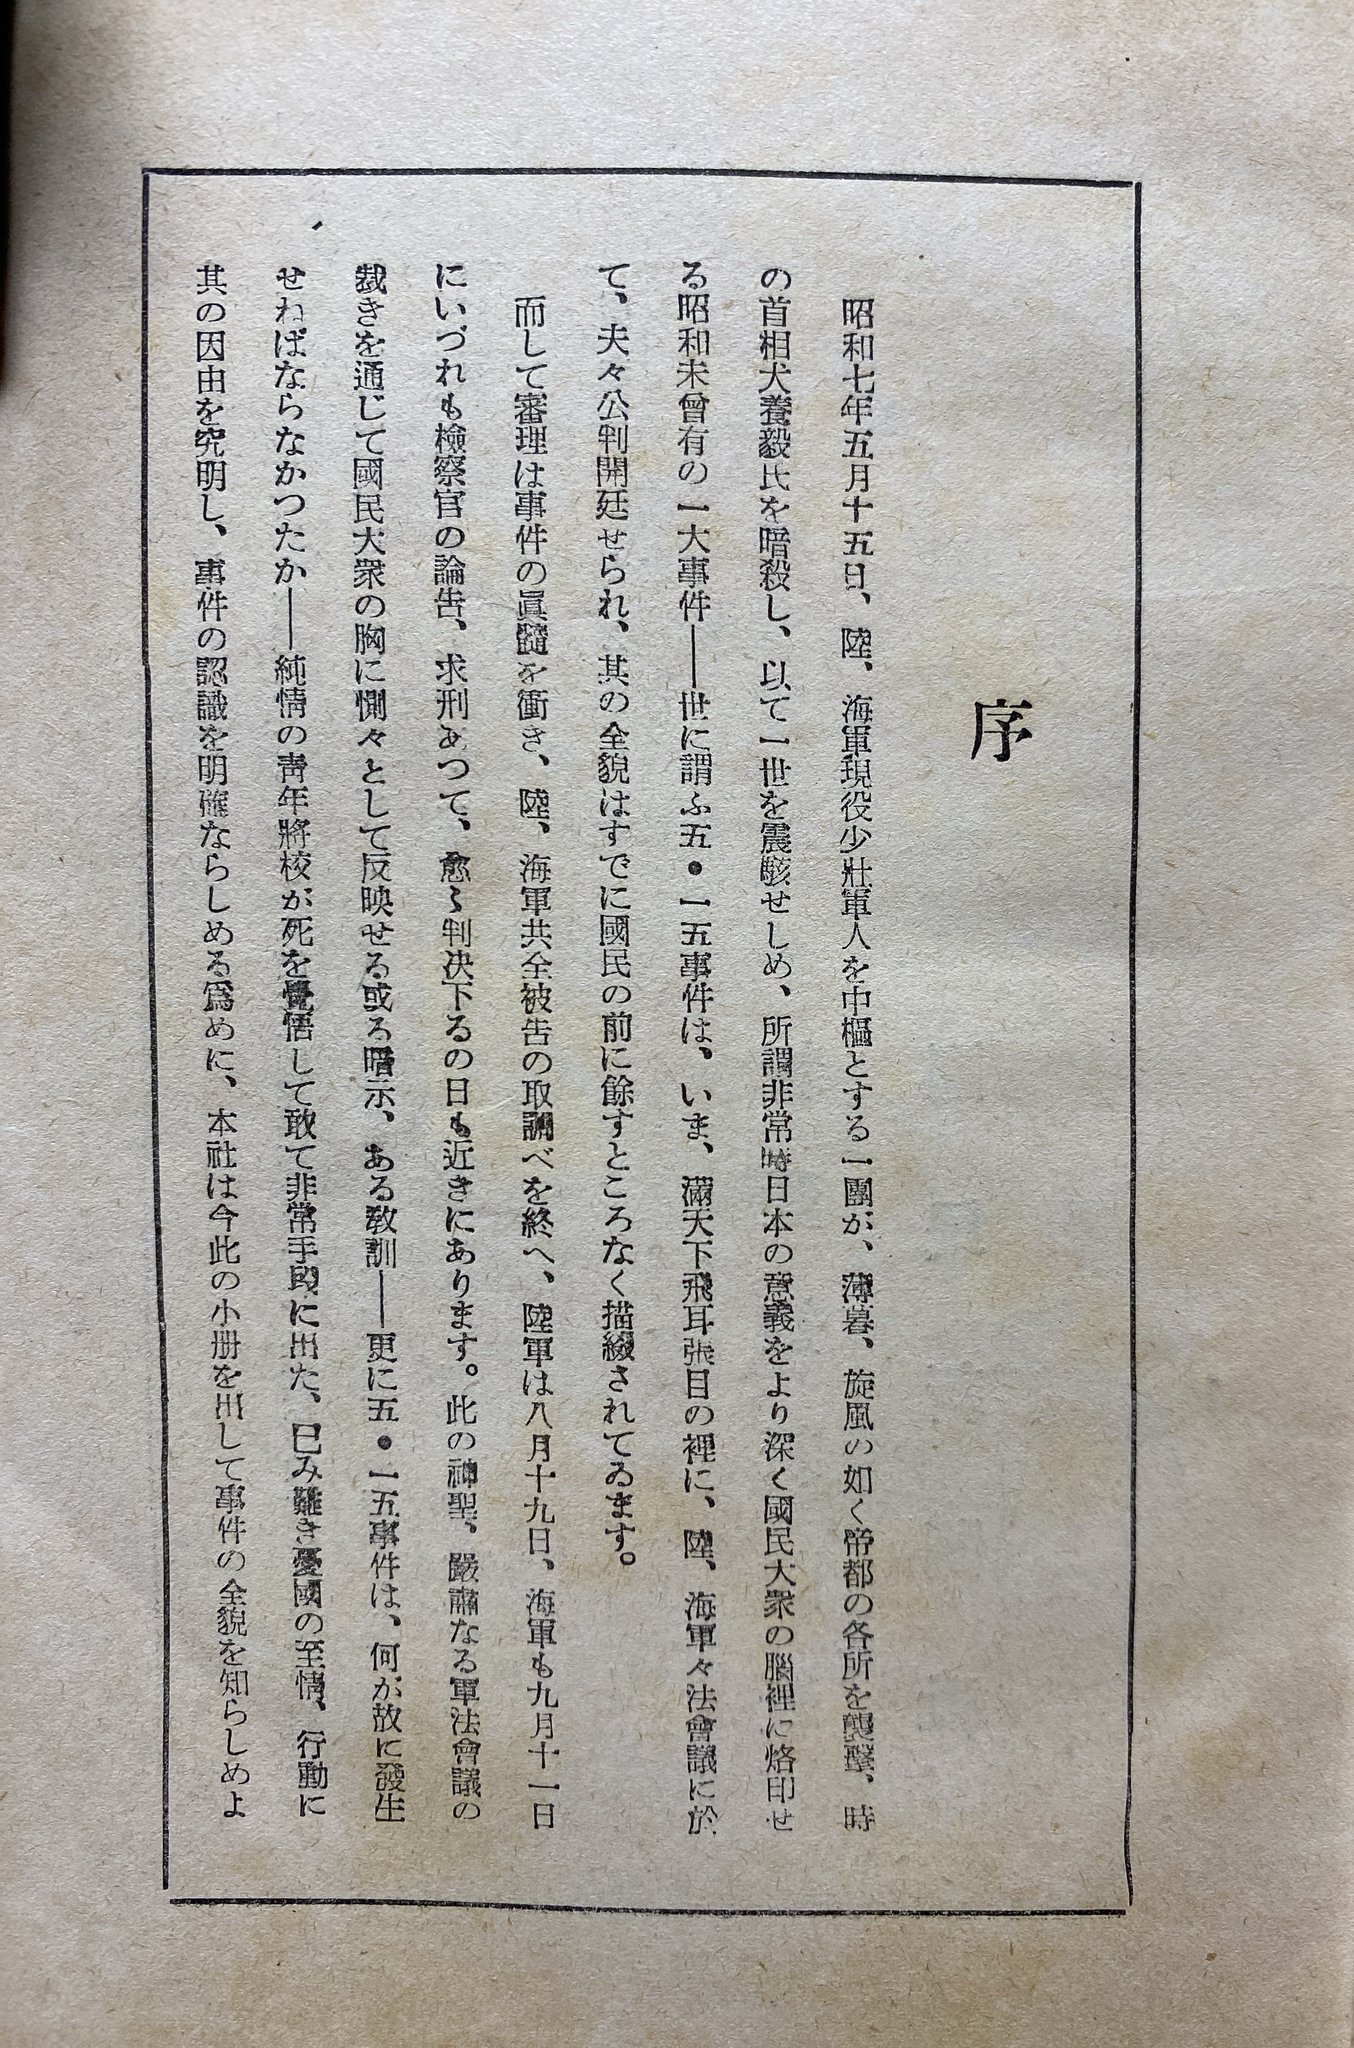 序
昭和七年五月十五日、陸、海軍現役少壯軍人を中樞とする一團が、薄暮、旋風の如く帝都の各所を襲擊、時
の首相犬養毅氏を暗殺し、以て一世を震駭せしめ、所謂非常時日本の意義をより深く國民大衆の腦裡に烙印せ
る昭和未曾有の一大事件――世に謂ふ五・一五事件は、いま、滿天下飛耳張目の裡に、陸、海軍々法會議に於
て、夫々公判開廷せられ、其の全貌はすでに國民の前に餘すところなく描綴されてゐます。
而して審理は事件の眞髓を衝き、陸、海軍共全被吿の取調べを終へ、陸軍は八月十九日、海軍も九月十一日
にいづれも檢察官の論吿、求刑あつて、愈々判決下るの日も近きにあります。此の神聖、嚴肅なる軍法會議の
裁きを通じて國民大衆の胸に惻々として反映せる或る暗示、ある敎訓――更に五・一五事件は、何が故に發生
せねばならなかつたか――純情の靑年將校が死を覺悟して敢て非常手段に出た、已み難き憂國の至情、行動に
其の因由を究明し、事件の認識を明確ならしめる爲めに、本社は今此の小册を出して事件の全貌を知らしめよ